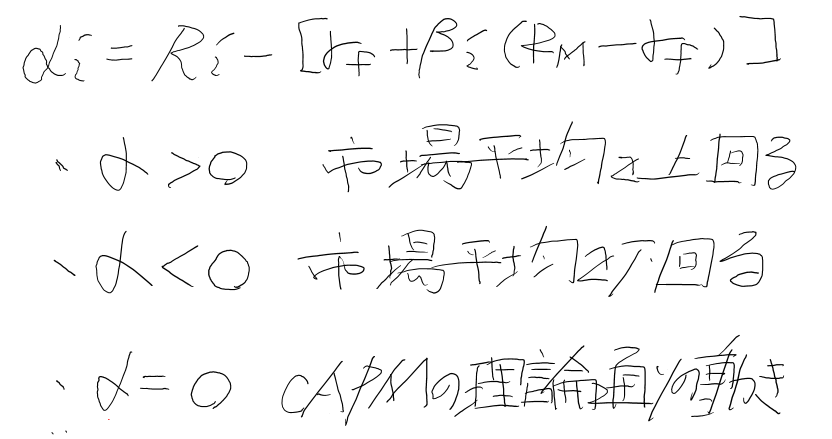 αi = Ri - [rf + βi (RM - rf)]
・α > 0 市場平均を上回る
・α < 0 市場平均を下回る
・α = 0 CAPMの理論通りの動き